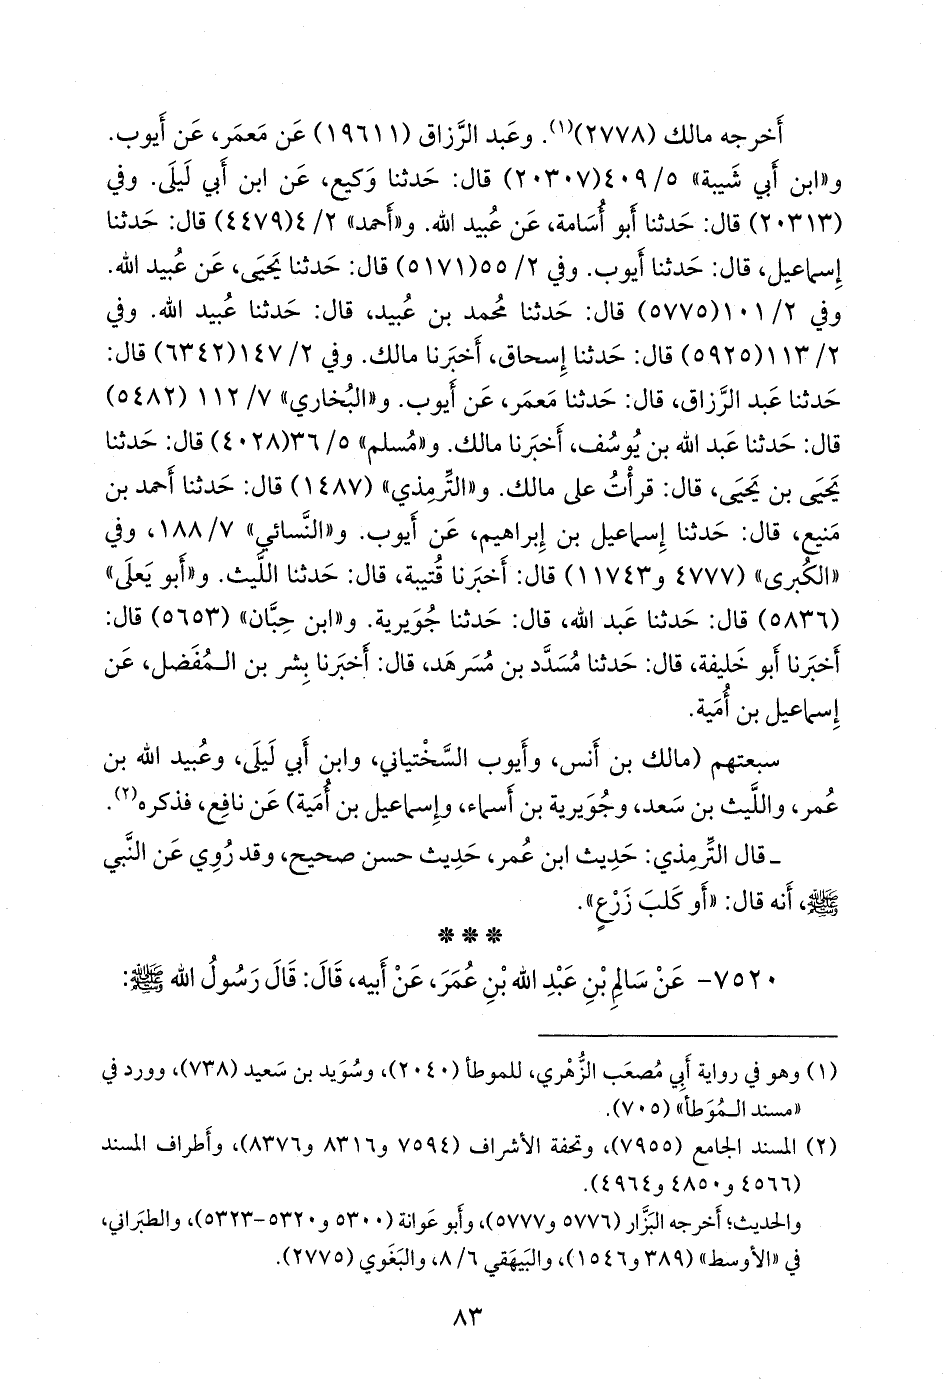 أَخرجه مالك (٢٧٧٨)(١). وعَبد الرَّزاق (١٩٦١١) عَن مَعمَر، عَن أَيوب.
و«ابن أَبي شَيبة» ٥/ ٤٠٩(٢٠٣٠٧) قال: حَدثنا وَكيع، عَن ابن أَبي لَيلَى. وفي
(٢٠٣١٣) قال: حَدثنا أَبو أُسَامة، عَن عُبيد الله. و«أَحمد» ٢/ ٤(٤٤٧٩) قال: حَدثنا
إِسماعيل، قال: حَدثنا أَيوب. وفي ٢/ ٥٥(٥١٧١) قال: حَدثنا يَحيَى، عَن عُبيد الله.
وفي ٢/ ١٠١(٥٧٧٥) قال: حَدثنا مُحمد بن عُبيد، قال: حَدثنا عُبيد الله. وفي
٢/ ١١٣(٥٩٢٥) قال: حَدثنا إِسحاق، أَخبَرنا مالك. وفي ٢/ ١٤٧(٦٣٤٢) قال:
حَدثنا عَبد الرَّزاق، قال: حَدثنا مَعمَر، عَن أَيوب. و«البُخاري» ٧/ ١١٢ (٥٤٨٢)
قال: حَدثنا عَبد الله بن يُوسُف، أَخبَرنا مالك. و«مُسلم» ٥/ ٣٦(٤٠٢٨) قال: حَدثنا
يَحيَى بن يَحيَى، قال: قرأْتُ على مالك. و«التِّرمِذي» (١٤٨٧) قال: حَدثنا أَحمد بن
مَنيع، قال: حَدثنا إِسماعيل بن إِبراهيم، عَن أَيوب. و«النَّسائي» ٧/ ١٨٨، وفي
«الكُبرى» (٤٧٧٧ و١١٧٤٣) قال: أَخبَرنا قُتيبة، قال: حَدثنا اللَّيث. و«أَبو يَعلَى»
(٥٨٣٦) قال: حَدثنا عَبد الله، قال: حَدثنا جُوَيرية. و«ابن حِبَّان» (٥٦٥٣) قال:
أَخبَرنا أَبو خَليفة، قال: حَدثنا مُسَدَّد بن مُسَرهَد، قال: أَخبَرنا بِشر بن الـمُفَضل، عَن
إِسماعيل بن أُمَية.
سبعتهم (مالك بن أَنس، وأَيوب السَّختِياني، وابن أَبي لَيلَى، وعُبيد الله بن
عُمر، واللَّيث بن سَعد، وجُوَيرية بن أَسماء، وإِسماعيل بن أُمَية) عَن نافِع، فذكره(٢).
ـ قال التِّرمِذي: حَدِيث ابن عُمر، حَدِيث حسن صحيح، وقد رُوِي عَن النَّبي
ﷺ، أَنه قال: «أَو كَلبَ زَرْعٍ».
* * *
٧٥٢٠- عَنْ سَالِمِ بْنِ عَبْدِ الله بْنِ عُمَرَ، عَنْ أَبيه، قَالَ: قَالَ رَسُولُ الله ﷺ:
(١) وهو في رواية أَبي مُصعَب الزُّهْري، للموطأ (٢٠٤٠)، وسُوَيد بن سَعيد (٧٣٨)، وورد في
«مسند الـمُوَطأ» (٧٠٥).
(٢) المسند الجامع (٧٩٥٥)، وتحفة الأشراف (٧٥٩٤ و٨٣١٦ و٨٣٧٦)، وأَطراف المسند
(٤٥٦٦ و٤٨٥٠ و٤٩٦٤).
والحديث؛ أَخرجه البَزَّار (٥٧٧٦ و٥٧٧٧)، وأَبو عَوانة (٥٣٠٠ و٥٣٢٠-٥٣٢٣)، والطبَراني،
في «الأَوسط» (٣٨٩ و١٥٤٦)، والبَيهَقي ٦/ ٨، والبَغَوي (٢٧٧٥).
٨٣